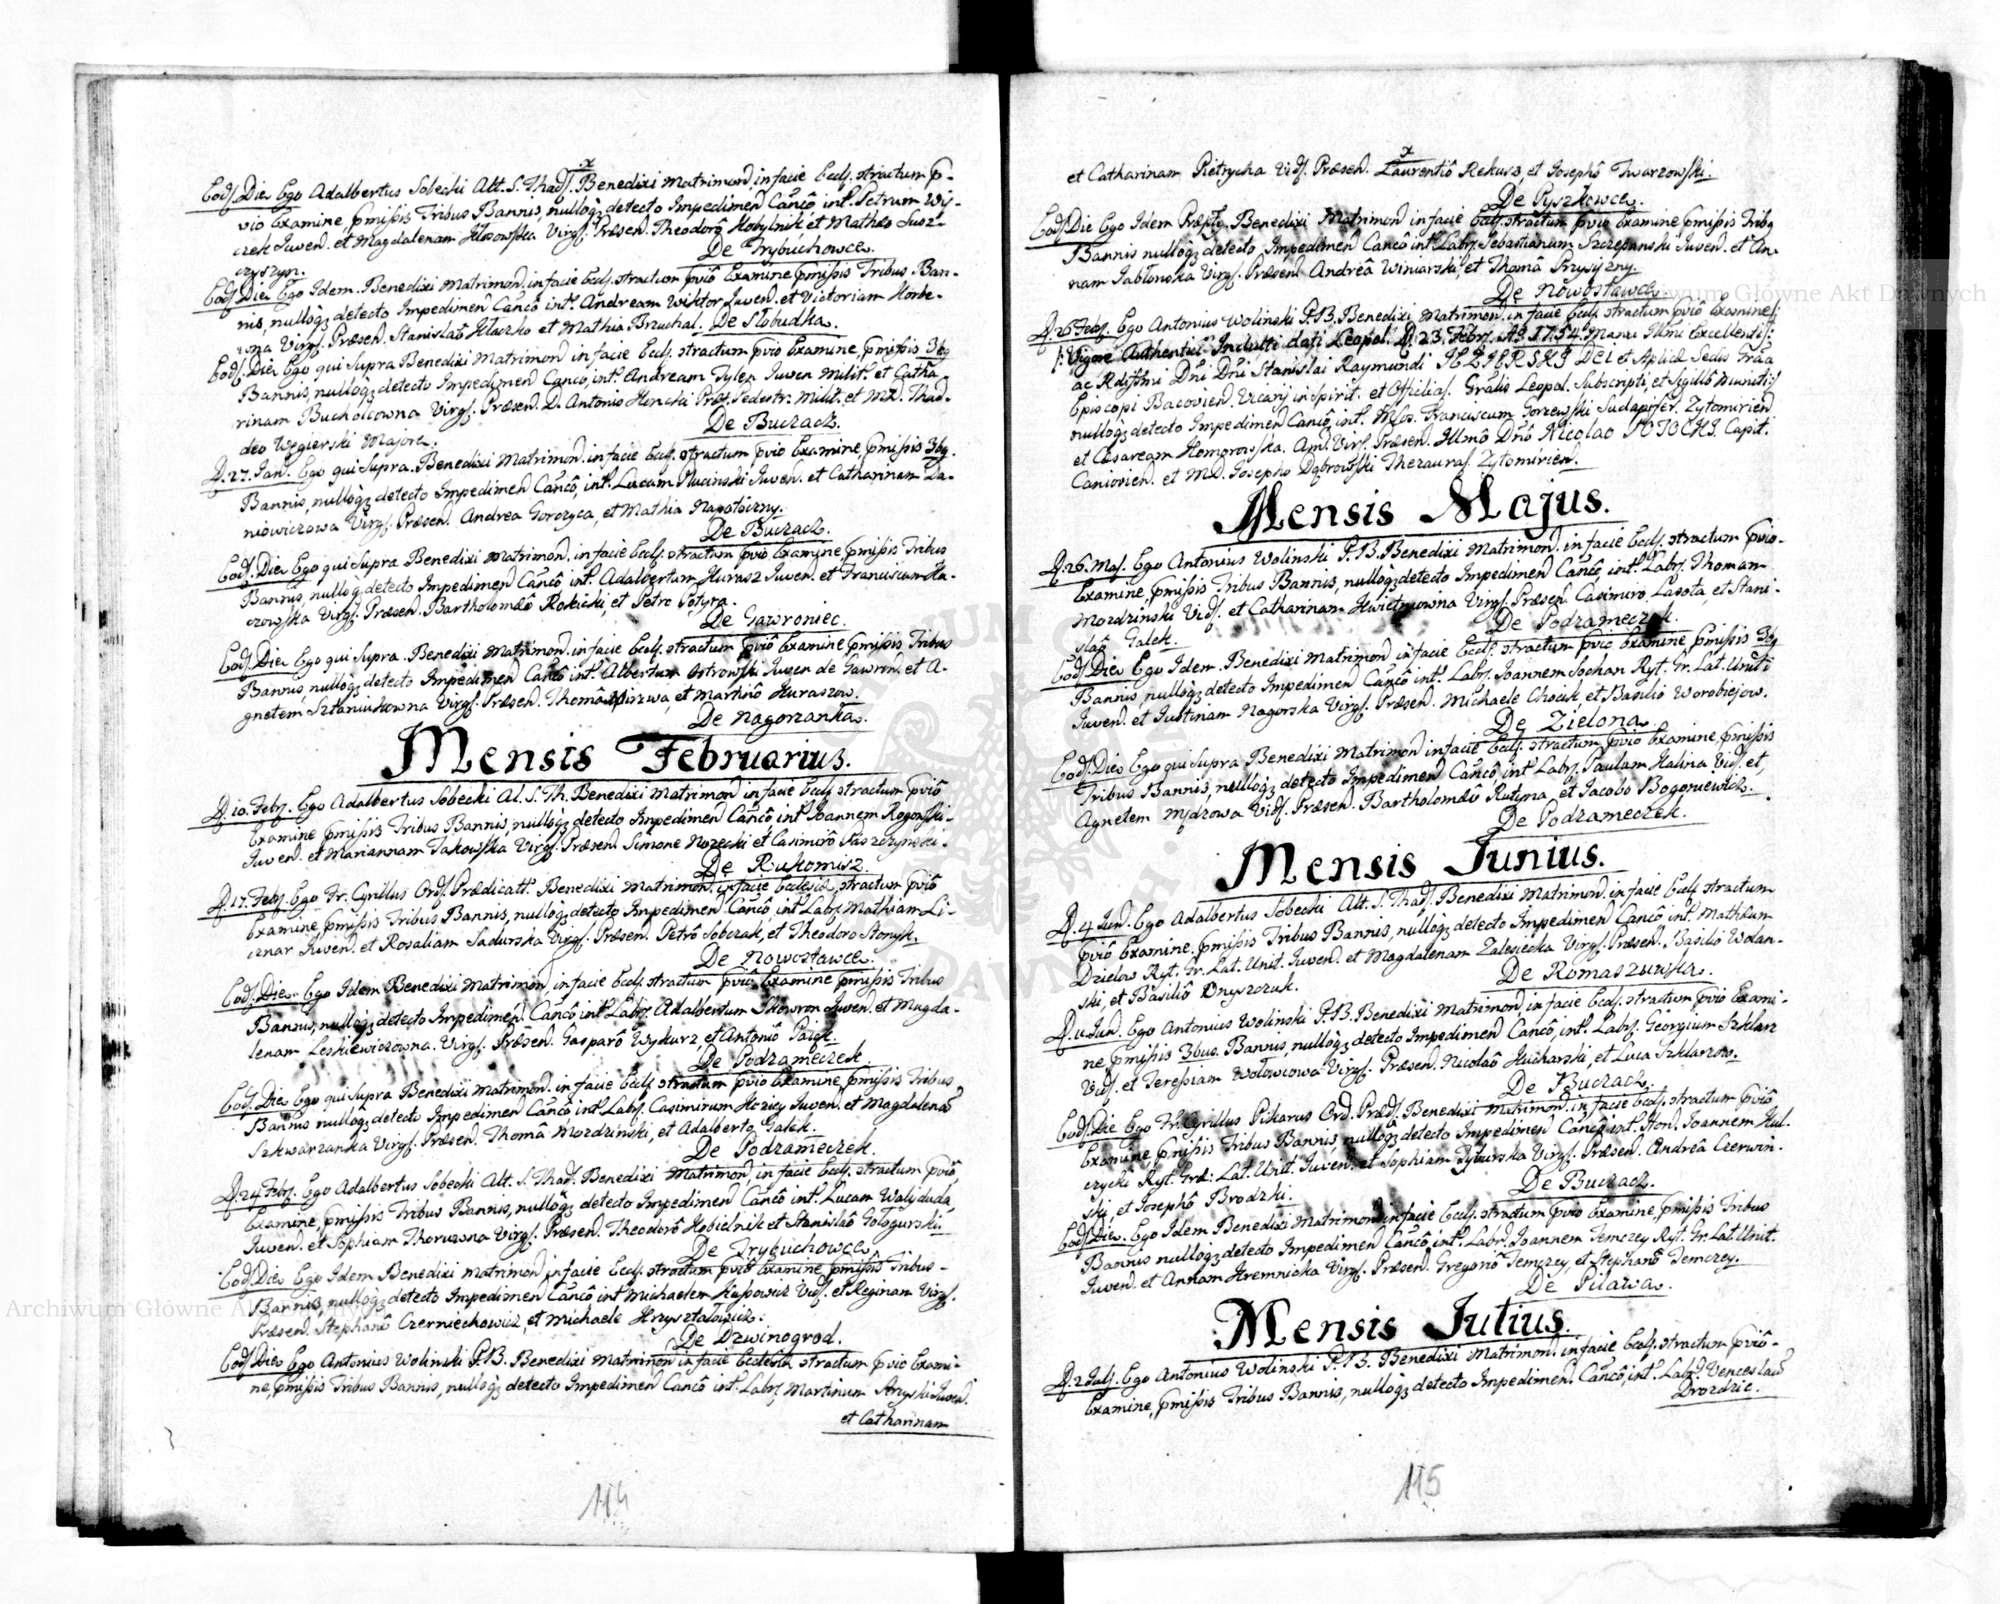 x
Eod. Die Ego Adalbertus Sobecki Alt. S. Thad. Benedixi Matrimon. in facie Eccl. stractum p-
vio Examine, pmissis Tribus Bannis, nulloq3 detecto Impedimen Canco int. Petrum Wy-
czek Juven. et Magdalenam Virg. Præsen. Theodorô Kobylnik et Mathæo Susz-
czyszyn.
De Trybuchowce.
Eod. Die Ego Idem Benedixi Matrimon. in facie Eccl. stractum pviô Examine pmissis Tribus Ban-
nis, nulloq3 detecto Impedimen Canco int. Andream Wiktor Juven. et Victoriam Horbe-
wna Virg. Præsen. Stanislaô Kłaczko et Mathia Bruchal. De Słobudka.
Eod. Die Ego qui Supra Benedixi Matrimon in facie Eccl. stractum pvio Examine, pmissis 3bq
Bannis, nulloq3 detecto Impedimen Canco, int. Andream Tylep Juven Milit. et Catha-
rinam Bucholcowna Virg. Præsen. D. Antonio Præf. Pedestr. Milit. et MD. Thad-
deo Węgierski Majore.
De Buczacz.
D. 27. Jan. Ego qui Supra Benedixi Matrimon. in facie Eccl. stractum pvio Examine, pmissis 3bq.
Bannis, nulloq3 detecto Impedimen Cancô, int. Lucam Słucinski Juven. et Catharinam Da-
niowiczowa Virg. Præsen. Andrea Gorczyca, et Mathia
De Buczacz.
Eod. Die Ego qui Supra Benedixi Matrimon. in facie Eccl. stractum pviô Examine, pmissis Tribus
Bannis, nulloq3 detecto Impedimen Canco int. Adalbertum Kurasz Juven. et Franciscam Ka-
czowska Virg. Præsen. Bartholomæô Rokicki, et Petro Potyra.
De Gawroniec.
Eod. Die Ego qui Supra Benedixi Matrimon. in facie Eccl. stractum pviô Examine, pmissis Tribus
Bannis, nulloq3 detecto Impedimen Canco int. Albertum Ostrowski Juven de Gawron. et A-
gnetem Sztaniukowna Virg. Præsen. Thomâ Mirzwa, et Martinô Kuraszow.
De Nagorzanka.
Mensis Februarius.
D. 10. Febr. Ego Adalbertus Sobecki Al. S. Th. Benedixi Matrimon in facie Eccl. stractum pviô
Examine pmissis Tribus Bannis, nulloq3 detecto Impedimen Cancô int. Joannem Rogowski
Juven. et Mariannam Jakowska Virg. Præsen. Simone Norecki et Casimirô Paszczynski.
De Rukomisz.
D. 17. Febr. Ego Fr. Cyrillus Ord. Prædicatt. Benedixi Matrimon. in facie Ecclesiæ, stractum pviô
Examine, pmissis Tribus Bannis, nulloq3 detecto Impedimen Cancô, int. Labr. Mathiam Li-
cznar Juven. et Rosaliam Sadurska Virg. Præsen. Petrô Sobczak, et Theodoro Stonyk.
De Nowostawce.
Eod. Die Ego Idem Benedixi Matrimon. in facie Eccl. stractum pviô Examine pmissis Tribus
Bannis, nulloq3 detecto Impedimen. Cancô int. Labr. Adalbertum Skowron Juven. et Magda-
lenam Leskiewiczowna. Virg. Præsen. Gasparô Wykurz, et Antoniô
De Podzameczek.
Eod. Die Ego qui Supra Benedixi Matrimon. in facie Eccl. stractum pvio Examine, pmissis Tribus
Bannis nulloq3 detecto Impedimen Canco int. Labr. Casimirum Koziey Juven. et Magdalenā
Szkwarzanka Virg. Præsen. Thomâ Mozdzinski, et Adalberto Galek.
De Podzameczek.
D. 24 Febr. Ego Adalbertus Sobecki Alt. S. Thad. Benedixi Matrimon, in facie Eccl. stractum pviô
Examine, pmissis Tribus Bannis, nulloq3 detecto Impedimen Cancô int. Lucam Waliduda
Juven. et Sophiam Virg. Præsen. Theodorô Kobielnik et Stanislaô Gołogurski.
De Trybuchowce.
Eod. Die Ego Idem Benedixi Matrimon in facie Eccl. stractum pviô Examine pmissis Tribus
Bannis, nulloq3 detecto Impedimen Cancô int Michaelem Vid. et Reginam Virg.
Præsen. Stephanô Czerniechowicz, et Michaele Krzysztalowicz.
De Dzwinogrod.
Eod. Die Ego Antonius Wolinski P.B. Benedixi Matrimon in facie Ecclesiæ stractum pvio Exami-
ne, pmissis Tribus Bannis, nulloq3 detecto Impedimen Cancô int. Labr. Martinum Juven.
et Catharinam
114
x
et Catharinam Pietrycha Vid. Præsen. Laurentiô Rekurs, et Josephô Twarzowski.
De Pyszkowce.
Eod. Die Ego Idem Præftg. Benedixi Matrimon in facie Eccl. stractum pvio Examine pmissis Tribq
Bannis nulloq3 detecto Impedimen Cancô int. Labr. Sebastianum Szczepanski Juven. et An-
nam Jabłonska Virg. Præsen. Andreâ Winiarski, et Thomâ Przysiężny.
De Nowostawce.
D. 26 Febr. Ego Antonius Wolinski P.B. Benedixi Matrimon. in facie Eccl. stractum pviô Examine
Vigore Authentici Indulti dati Leopol. D. 23. Febr. A̅o̅ 1754. Manu Illmi Excellentis.
ac Rdissimi Dni Dni Stanislai Raymundi JEZIERSKI DEI et Aplicæ Sedis Grãa
Episcopi Bacovien. Vicarij in Spirit. et Officilis. Gralis Leopol. Subscripti, et Sigillô Muniti
nulloq3 detecto Impedimen Cancô, int. Franciscum Gorzewski Sudapifer. Zytomirien
et Cæsaream Komorowska. Virg. Præsen. Illmô Dnô Nicolao POTOCKI. Capit.
Caniovien. et MD. Josepho Dąbrowski Thezauras. Zytomirien.
Mensis Majus.
D. 26. Maj. Ego Antonius Wolinski P.B. Benedixi Matrimon. in facie Eccl. stractum pvio-
Examine, pmissis Tribus Bannis, nulloq3 detecto Impedimen Cancô, int. Labr. Thomam
Mozdzinski Vid. et Catharinam Kwietniowna Virg. Præsen. Casimiro Lasota, et Stani-
slaô Galek.
De Podzameczek.
Eod. Die Ego Idem Benedixi Matrimon in facie Eccl. stractum pvio Examine, pmissis 3bq
Bannis, nulloq3 detecto Impedimen Cancô int. Labr. Joannem Sochan Ryt. Gr. Lat. Uniti
Juven. et Justinam Nagorska Virg. Præsen. Michaele Chocik et Basiliô Worobiejow.
De Zielona.
Eod. Die Ego qui Supra Benedixi Matrimon in facie Eccl. stractum pvio Examine, pmissis
Tribus Bannis, nulloq3 detecto Impedimen Cancô, int Labr. Paulum Kalina Vid. et,
Agnetem Mędrowa Vid. Præsen. Bartholomæô Rutyna, et Jacobo Bogoniewicz.
De Podzameczek.
Mensis Junius.
D. 4 Jun. Ego Adalbertus Sobecki Alt. S. Thad. Benedixi Matrimon. in facie Eccl. stractum
pviô Examine. pmissis Tribus Bannis, nulloq3 detecto Impedimen Cancô int. Mathæum
Dzielow Ryt. Gr. Lat. Unit. Juven. et Magdalenam Zalesiecka Virg. Præsen. Basiliô Wolan-
ski, et Basiliô Onyszczuk.
De Romaszuwka.
D. 11 Jun. Ego Antonius Wolinski P.B. Benedixi Matrimon, in facie Eccl. stractum pvio Exami-
ne, pmissis 3bus. Bannis, nulloq3 detecto Impedimen Cancô, int. Labr. Georgium Szklarz
Vid. et Teressiam Wołowcowa Virg. Præsen. Nicolaô Kucharski, et Luca Szklarzow.
De Buczacz.
Eod. Die Ego Fr. Cyrillus Pikarus Ord. Præd. Benedixi Matrimon. in facie Eccl. stractum pviô
Examine pmissis Tribus Bannis, nulloq3 detecto Impedimen Cancô int. Hon. Joannem Kul-
czycki Ryt. Græ: Lat. Unit. Juven. et Sophiam Tyburska Virg. Præsen. Andreâ Czerwin-
ski, et Josephô Brodzki.
De Buczacz.
Eod. Die Ego Idem Benedixi Matrimon in facie Eccl. stractum pvio Examine, pmissis Tribus
Bannis nulloq3 detecto Impedimen Cancô int. Labr. Joannem Temczey Ryt. Gr. Lat. Unit.
Juven. et Annam Kremnicka Virg. Præsen. Gregoriô Temczey, et Stephanô Temczey.
De Pilawa.
Mensis Julius.
D. 2 Julj. Ego Antonius Wolinski P.B. Benedixi Matrimon. in facie Eccl. stractum pviô-
Examine, pmissis Tribus Bannis, nulloq3 detecto Impedimen. Cancô, int. Labr. Venceslaū
Drozdzic.
115
Archiwum Główne Akt Dawnych